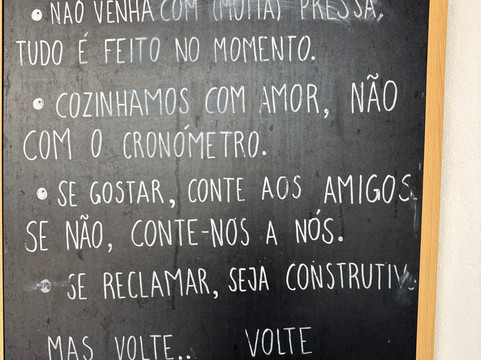 • NÃO VENHA COM (MUITA) PRESSA,
TUDO É FEITO NO MOMENTO.
• COZINHAMOS COM AMOR, NÃO
COM O CRONÓMETRO.
• SE GOSTAR, CONTE AOS AMIGOS.
SE NÃO, CONTE-NOS A NÓS.
• SE RECLAMAR, SEJA
MAS VOLTE.. VOLTE